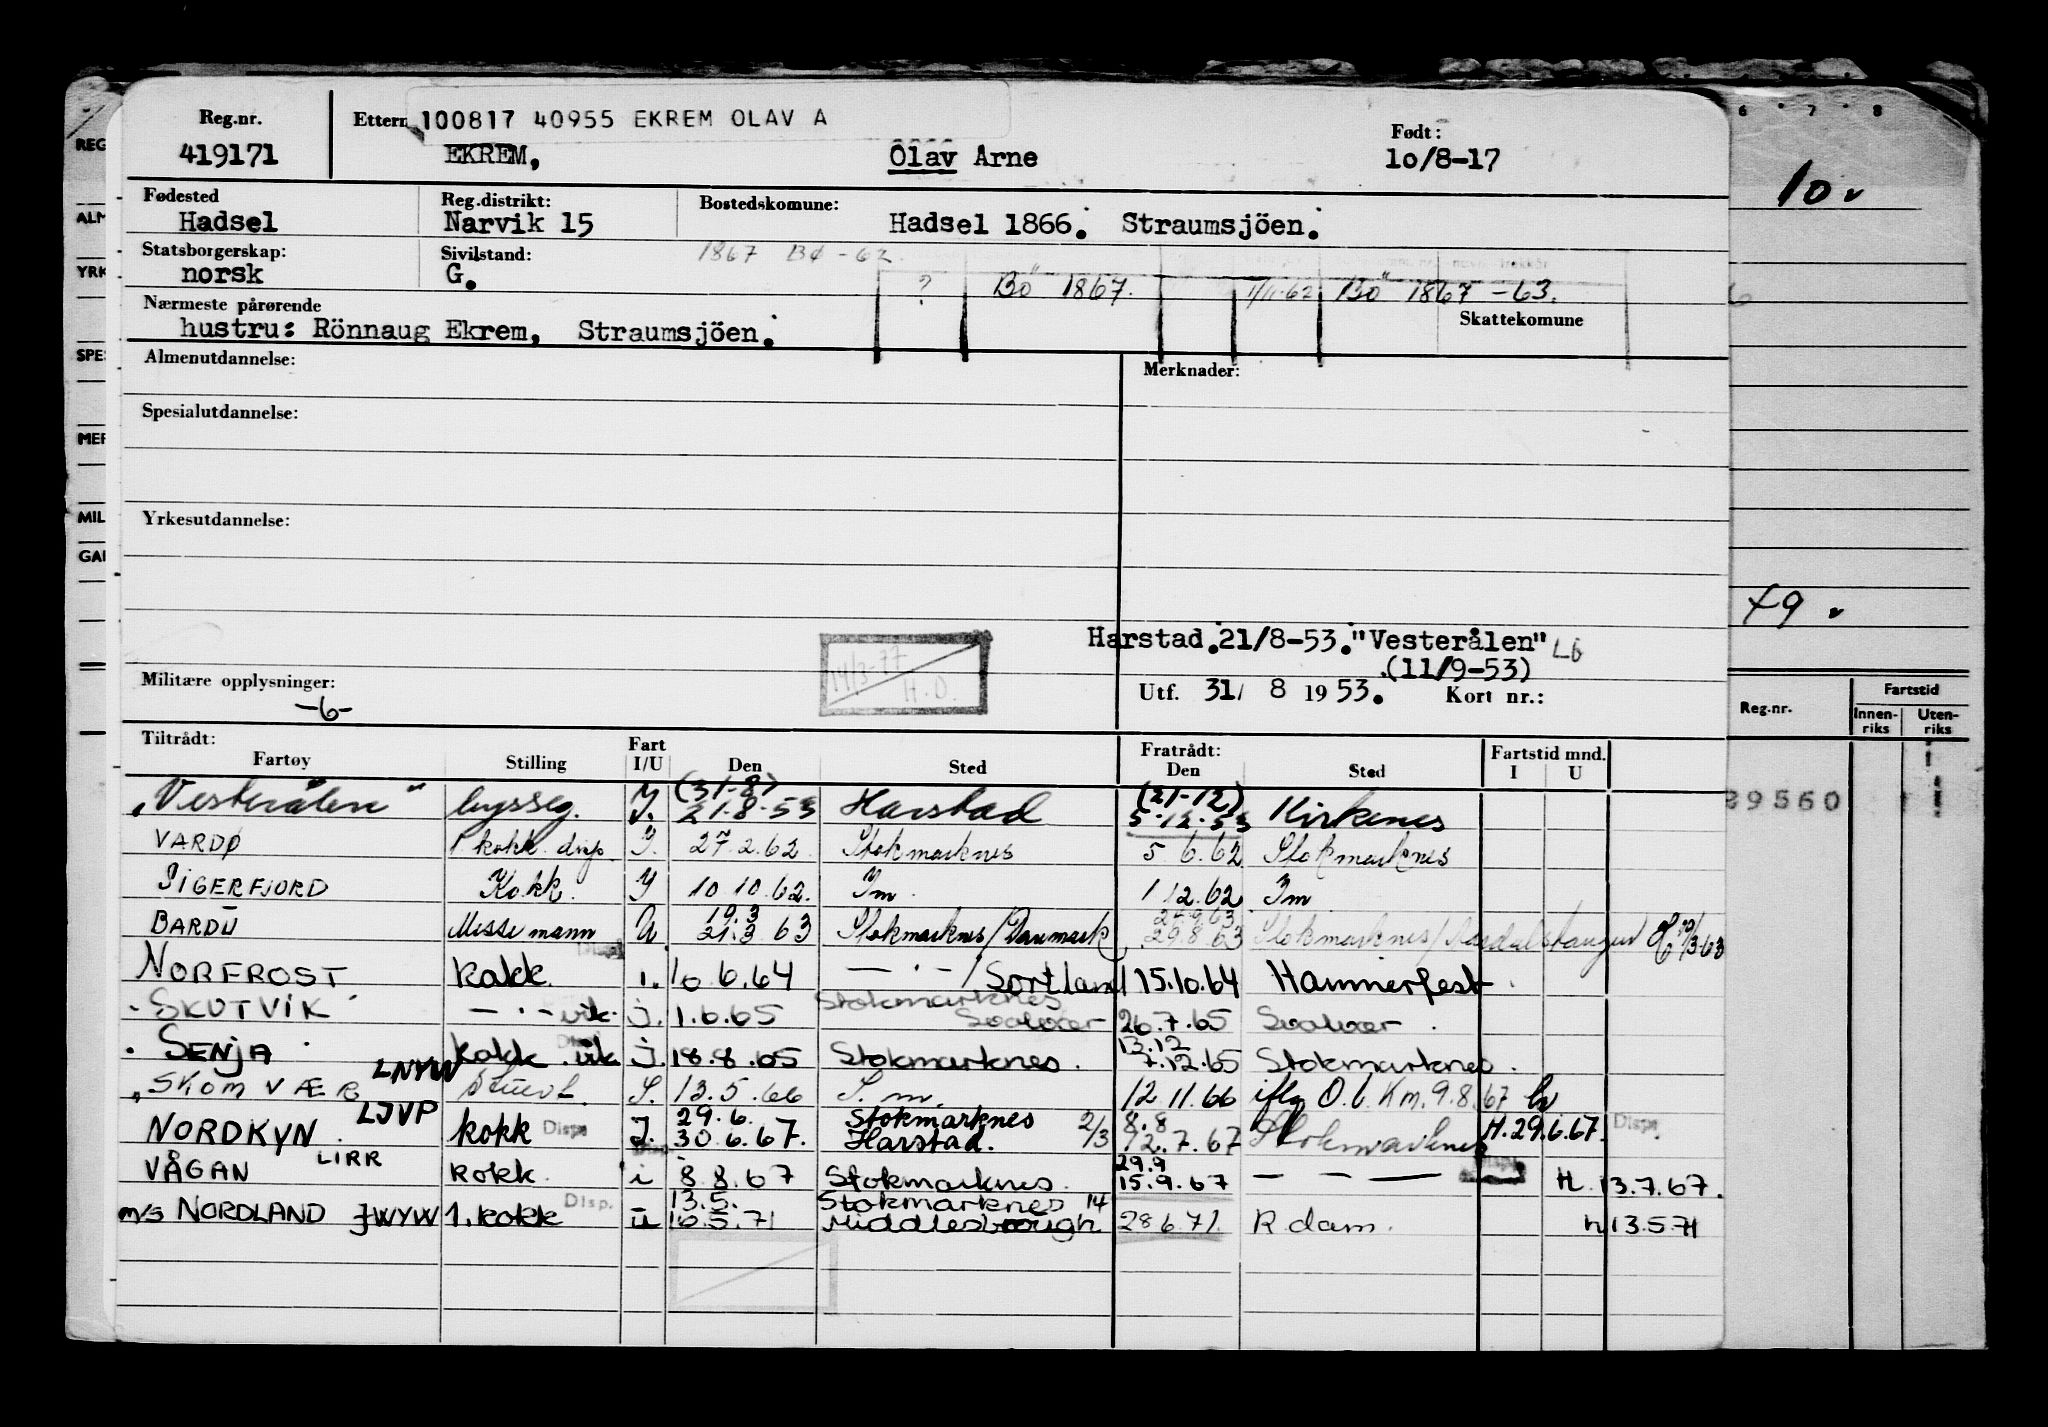 Reg.nr. Ettern 100817 40955 EKREM OLAV A Født:
419171 EKREM, Olav Arne 10/8-17
Fødested Reg.distrikt: Bostedskomune:
Hadsel Narvik 15 Hadsel 1866. Straumsjöen.
Statsborgerskap: Sivilstand: 1867 BØ - 62.
norsk G. ? Bö 1867. 1/11-62 Bö 1867 -63.
Nærmeste pårørende Skattekomune
hustru: Rönnaug Ekrem, Straumsjöen.
Almenutdannelse: Merknader:
Spesialutdannelse:
Yrkesutdannelse:
Harstad.21/8-53."Vesterålen"
(11/9-53)
14/3-77
H.O.
Militære opplysninger: Utf. 31/ 8 1953. Kort nr.:
-6-
Tiltrådt: Fart Fratrådt: Fartstid mnd.
Fartøy Stilling I/U Den Sted Den Sted I U
"Vesterålen" bysseg. J. (31-8) 21-8-53 Harstad (21-12) 5-12-53 Kirkenes
VARDØ 1 kokk disp. I. 27.2.62 Stokmarknes 5.6.62 Stokmarknes
SIGERFJORD Kokk. Y 10.10.62. Im. 1.12.62 Im
BARDU Messemann U 19.3 21.3.63 Stokmarknes/Danmark 29.8.63 Stokmarknes/Aardalstangen
NORFROST kokk i. 10.6.64 — · — / Sortland 15.10.64 Hammerfest
SKUTVIK — · — vik. j. 1.6.65 Stokmarknes Svolvær 26.7.65 Svolvær
SENJA kokk vik j. 18.8.65 Stokmarknes. 13.12 7.12.65 Stokmarknes.
"SKOMVÆR LNYW Stuert. S. 13.5.66 S. m. 12.11.66 iflg O.l. Km. 9.8.67
NORDKYN LJVP kokk Disp. J. 29.6. 30.6.67. Stokmarknes Harstad. 2/3 8.8 12.7.67 Stokmarknes H.29.6.67. Disp.
VÅGAN LIRR kokk. i 8.8.67 Stokmarknes. 29.9 15.9.67 — — — H. 13.7.67.
m/s NORDLAND JWYW 1. kokk Disp. u 13.5. 16.5.71 Stokmarknes 14 Middlesbrough 28.6.71. R.dam. h 13.5.71
REG
ALM
YRK
SPES
MER
MIL
GAP
6 7 8
10
49
Reg.nr. Fartstid
Innen-riks Uten-riks
29560